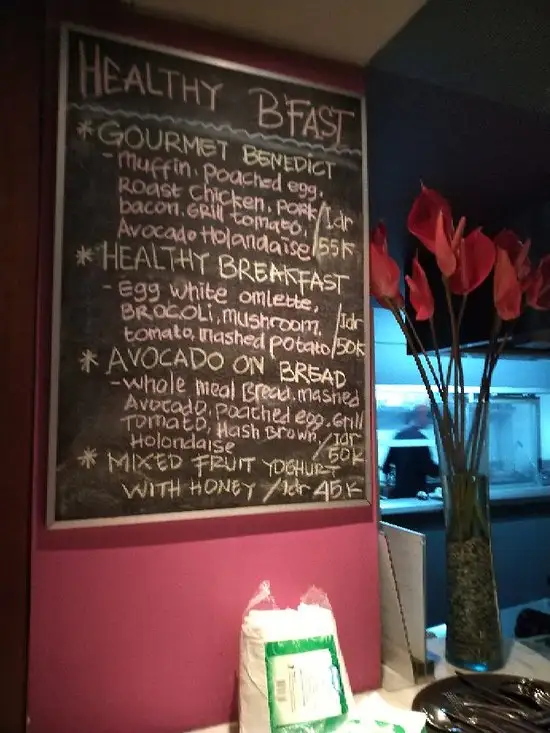 HEALTHY B'FAST
* GOURMET BENEDICT
- Muffin, Poached egg,
Roast Chicken, Pork
bacon, Grill tomato, / Idr
Avocado Holandaise / 55K
* HEALTHY BREAKFAST
- Egg white omlette,
BROCOLI, mushroom, / Idr
tomato, mashed potato / 50K
* AVOCADO ON BREAD
- whole meal Bread, mashed
Avocado, Poached egg, Grill
Tomato, Hash Brown, / Idr
Holondaise / 50K
* MIXED FRUIT YOGHURT
WITH HONEY / Idr 45K